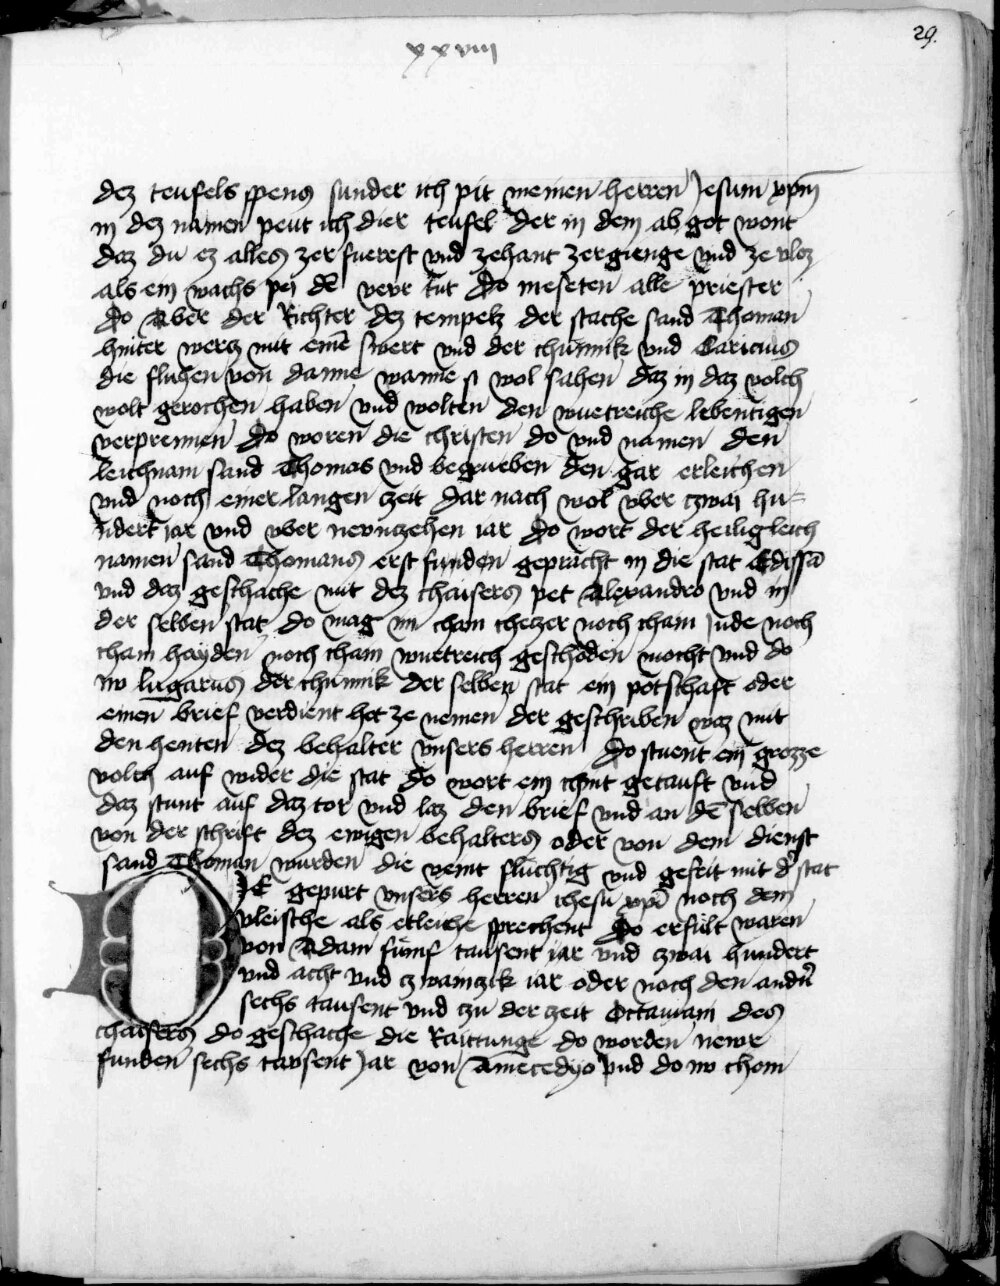 xxviii
29.
dez teufels spens sunder ich pit meinen herren Jesum xpm̄
in dez namen peut ich dier teufel der in dem ab got wont
daz du ez alles zer fuerest vnd zehant zergienge vnd ze vloz
als ein wachs pei dē vevr tut Do meseten alle priester
Do Aber der Richter dez tempelz der stache sand Thoman
hinter wercz mit einē swert vnd der chunnik vnd Caricius
die fluhen von danne wanne si wol sahen daz in daz volch
wolt gerochen haben vnd wolten den wuetreiche lebentigen
verprennen Do woren die christen do vnd namen den
leichnam sand Thomas vnd begrueben den gar erleichen
vnd noch einer langen zeit dar nach wol vber czwai hu-
ndert iar vnd vber nevnczehen iar Do wort der heilig leich
namen sand Thomans erst funden gepracht in die stat Edissā
vnd daz geschache mit dez chaisers pet Alexandro vnd in
der selben stat do mag im cham checzer noch cham Jude noch
cham hayden noch cham wuetreich geschoden mocht vnd do
nv lugarus der chunnik der selben stat ein potschaft oder
einen brief verdient het ze nemen der geschriben waz mit
den henten dez behalter vnsers herren Do stuent ein grozze
volch auf wider die stat do wort ein chint getauft vnd
daz stunt auf daz tor vnd laz den brief vnd an dē selben
von der schrift dez ewigen behalters oder von dem dienst
sand Thoman wurden die veint fluchtig vnd gefrit mit d' stat
DIE gepurt vnsers herren ihesu xp̄i noch dem
vleische als etleiche sprechent Do erfult waren
von Adam fumf tausent iar vnd czwai hundert
vnd acht vnd czwainczik iar oder noch den andn̄
sechs tausent vnd czu der zeit Octauiani des
chaisers do geschache die Raittunge do worden newr
funden sechs tavsent Jar von Amecedyo vnd do nv chom